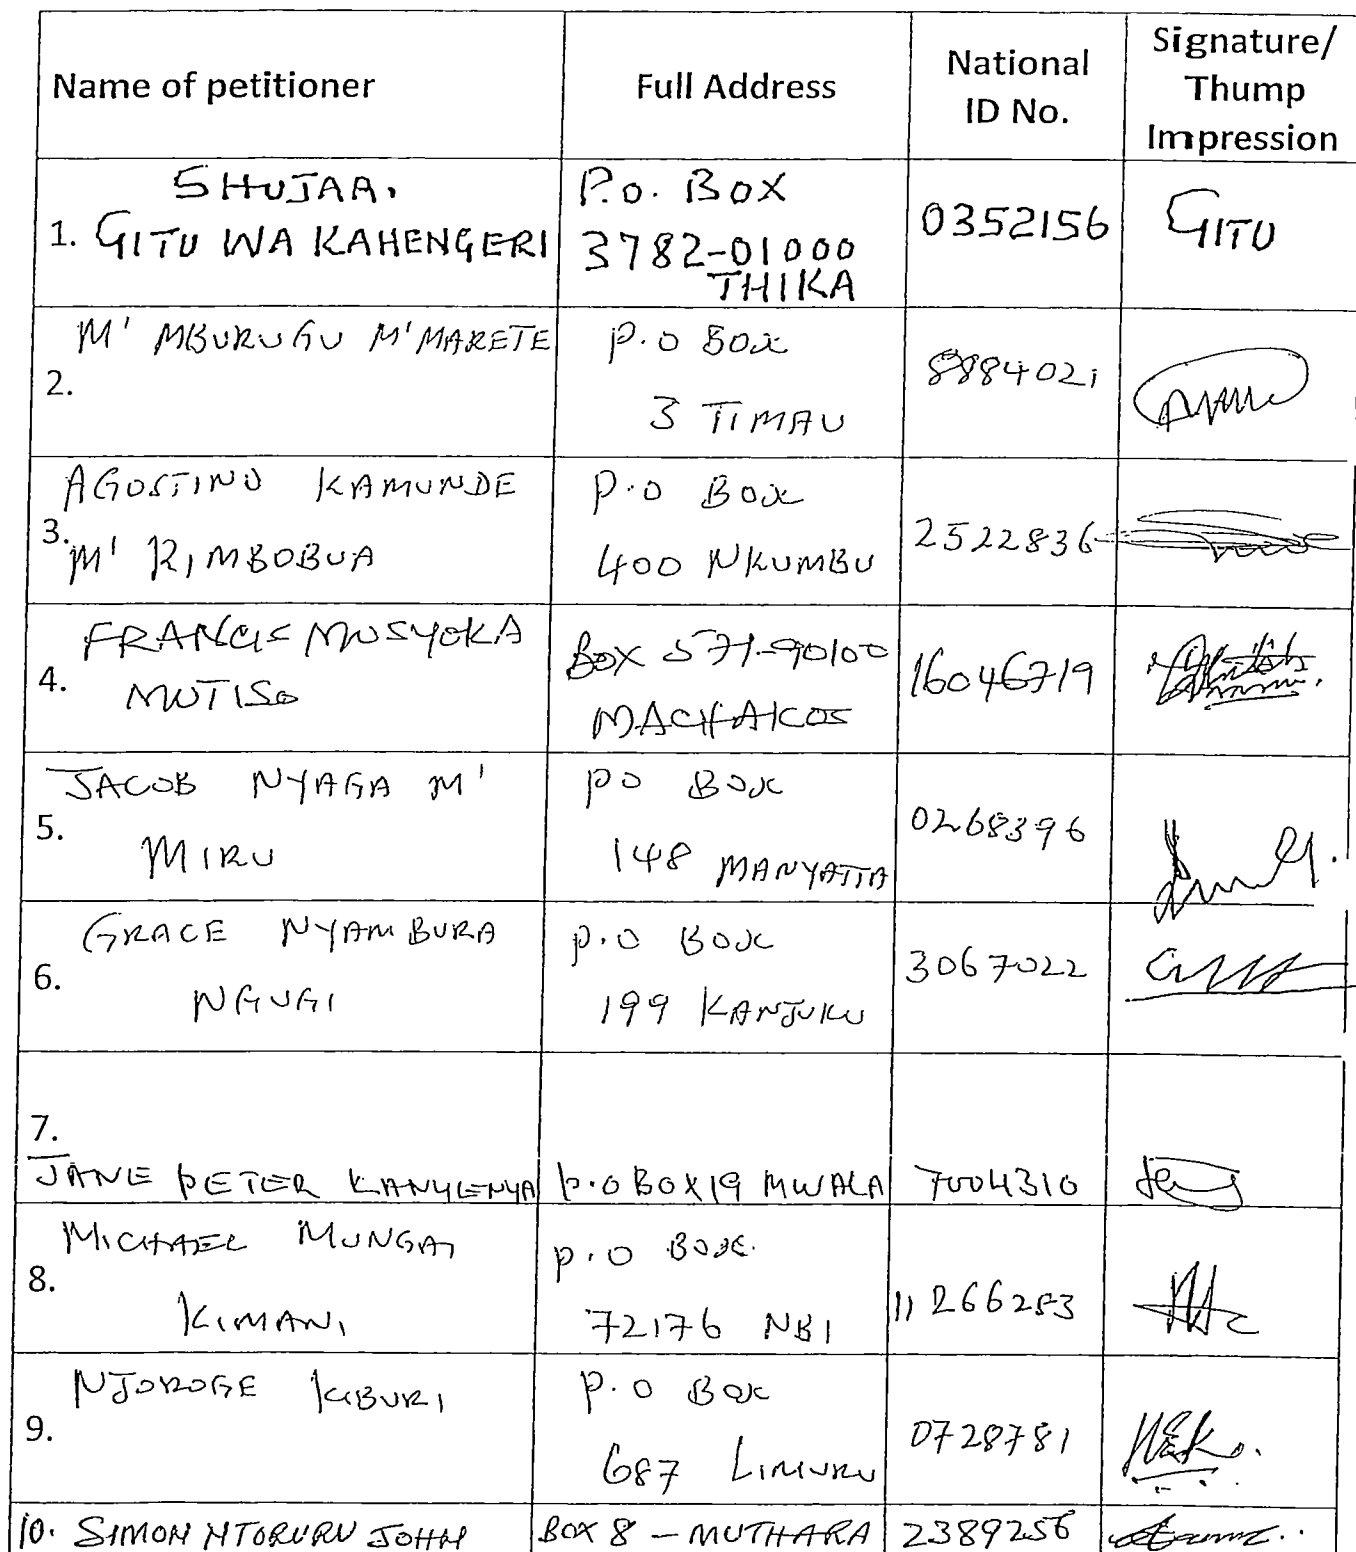 Name of petitioner
Full Address
National
ID No.
Signature/
Thump
Impression
SHUJAA.
1. GITU WA KAHENGERI
P.O. BOX
3782-01000
THIKA
0352156
GITU
M' MBURUGU M'MARETE
2.
P.O BOX
3 TIMAU
8884021
AGOSTINO KAMUNDE
3. M' RIMBOBUA
P.O BOX
400 NKUMBU
2522836
FRANCIS MUSYOKA
4. MUTISO
BOX 571-90100
MACHAKOS
16046719
JACOB NYAGA M'
5. MIRU
PO BOX
148 MANYATTA
0268396
GRACE NYAMBURA
6. NGUGI
P.O BOX
199 KANJUKU
3067022
7.
JANE PETER KANYLENYA
P.O BOX 19 MWALA
7004310
MICHAEL MUNGAI
8. KIMANI
P.O BOX.
72176 NBI
11266283
NJOROGE KIBURI
9.
P.O BOX
687 LIMURU
0728781
10. SIMON NTORURU JOHN
BOX 8 - MUTHARA
2389256